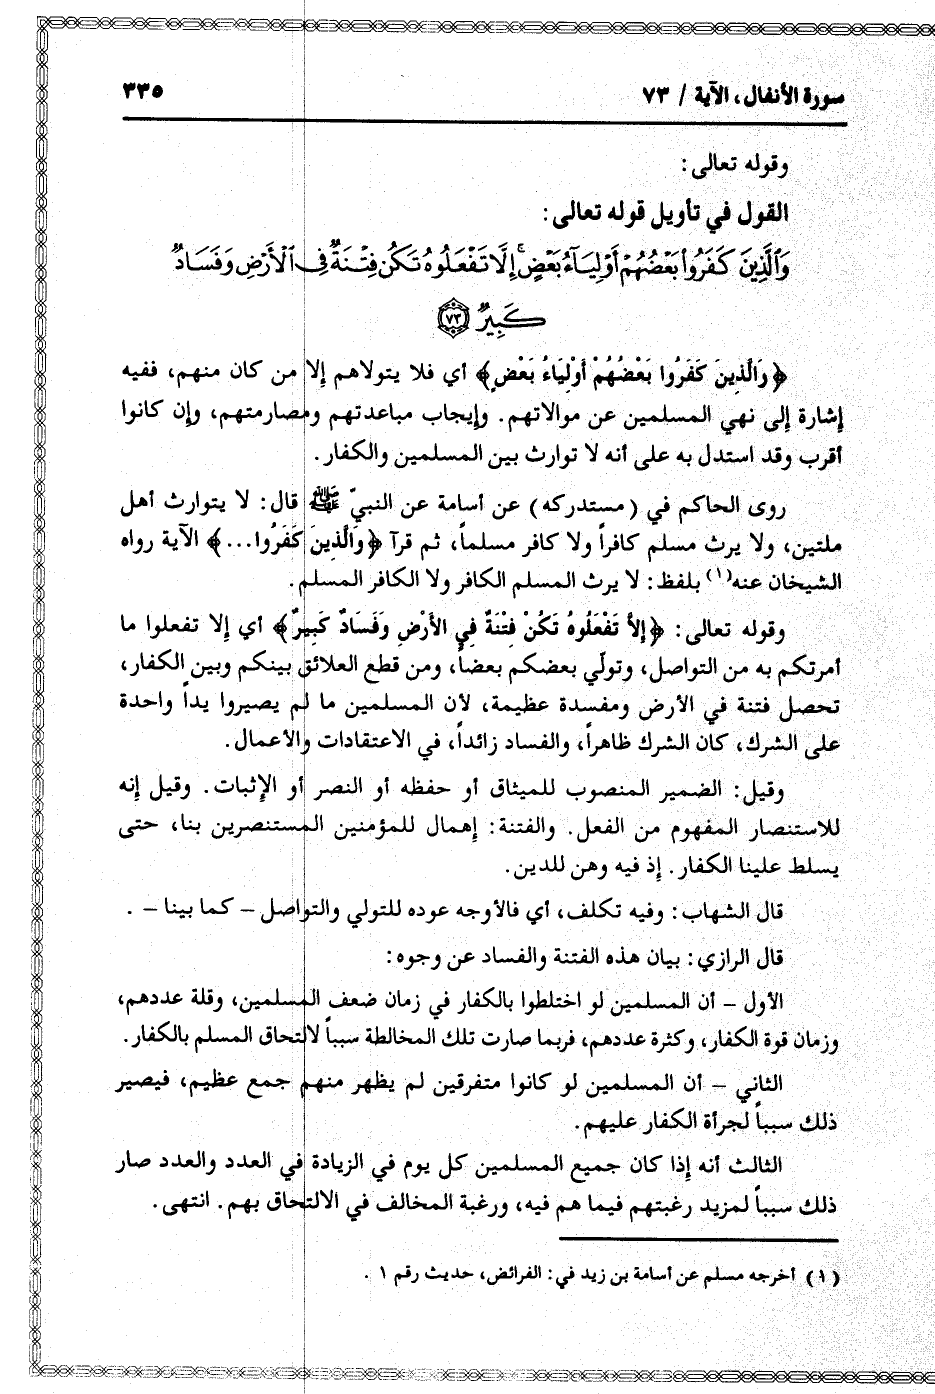 سورة الأنفال، الآية / ٧٣ ٣٣٥
وقوله تعالى:
القول في تأويل قوله تعالى:
وَٱلَّذِينَ كَفَرُوا۟ بَعْضُهُمْ أَوْلِيَآءُ بَعْضٍ ۚ إِلَّا تَفْعَلُوهُ تَكُن فِتْنَةٌ فِى ٱلْأَرْضِ وَفَسَادٌ
كَبِيرٌ ٧٣
﴿وَالَّذِينَ كَفَرُوا بَعْضُهُمْ أَوْلِيَاءُ بَعْضٍ﴾ أي فلا يتولاهم إلا من كان منهم، ففيه
إشارة إلى نهي المسلمين عن موالاتهم. وإيجاب مباعدتهم ومصارمتهم، وإن كانوا
أقرب وقد استدل به على أنه لا توارث بين المسلمين والكفار.
روى الحاكم في (مستدركه) عن أسامة عن النبيّ ﷺ قال: لا يتوارث أهل
ملتين، ولا يرث مسلم كافراً ولا كافر مسلماً، ثم قرآ ﴿وَالَّذِينَ كَفَرُوا...﴾ الآية رواه
الشيخان عنه(١) بلفظ: لا يرث المسلم الكافر ولا الكافر المسلم.
وقوله تعالى: ﴿إِلاَّ تَفْعَلُوهُ تَكُنْ فِتْنَةٌ فِي الأَرْضِ وَفَسَادٌ كَبِيرٌ﴾ أي إلا تفعلوا ما
أمرتكم به من التواصل، وتولّي بعضكم بعضاً، ومن قطع العلائق بينكم وبين الكفار،
تحصل فتنة في الأرض ومفسدة عظيمة، لأن المسلمين ما لم يصيروا يداً واحدة
على الشرك، كان الشرك ظاهراً، والفساد زائداً، في الاعتقادات والأعمال.
وقيل: الضمير المنصوب للميثاق أو حفظه أو النصر أو الإثبات. وقيل إنه
للاستنصار المفهوم من الفعل. والفتنة: إهمال للمؤمنين المستنصرين بنا، حتى
يسلط علينا الكفار. إذ فيه وهن للدين.
قال الشهاب: وفيه تكلف، أي فالأوجه عوده للتولي والتواصل – كما بينا – .
قال الرازي: بيان هذه الفتنة والفساد عن وجوه:
الأول – أن المسلمين لو اختلطوا بالكفار في زمان ضعف المسلمين، وقلة عددهم،
وزمان قوة الكفار، وكثرة عددهم، فربما صارت تلك المخالطة سبباً لالتحاق المسلم بالكفار.
الثاني – أن المسلمين لو كانوا متفرقين لم يظهر منهم جمع عظيم، فيصير
ذلك سبباً لجرأة الكفار عليهم.
الثالث أنه إذا كان جميع المسلمين كل يوم في الزيادة في العدد والعدد صار
ذلك سبباً لمزيد رغبتهم فيما هم فيه، ورغبة المخالف في الالتحاق بهم. انتهى.
(١) أخرجه مسلم عن أسامة بن زيد في: الفرائض، حديث رقم ١ .